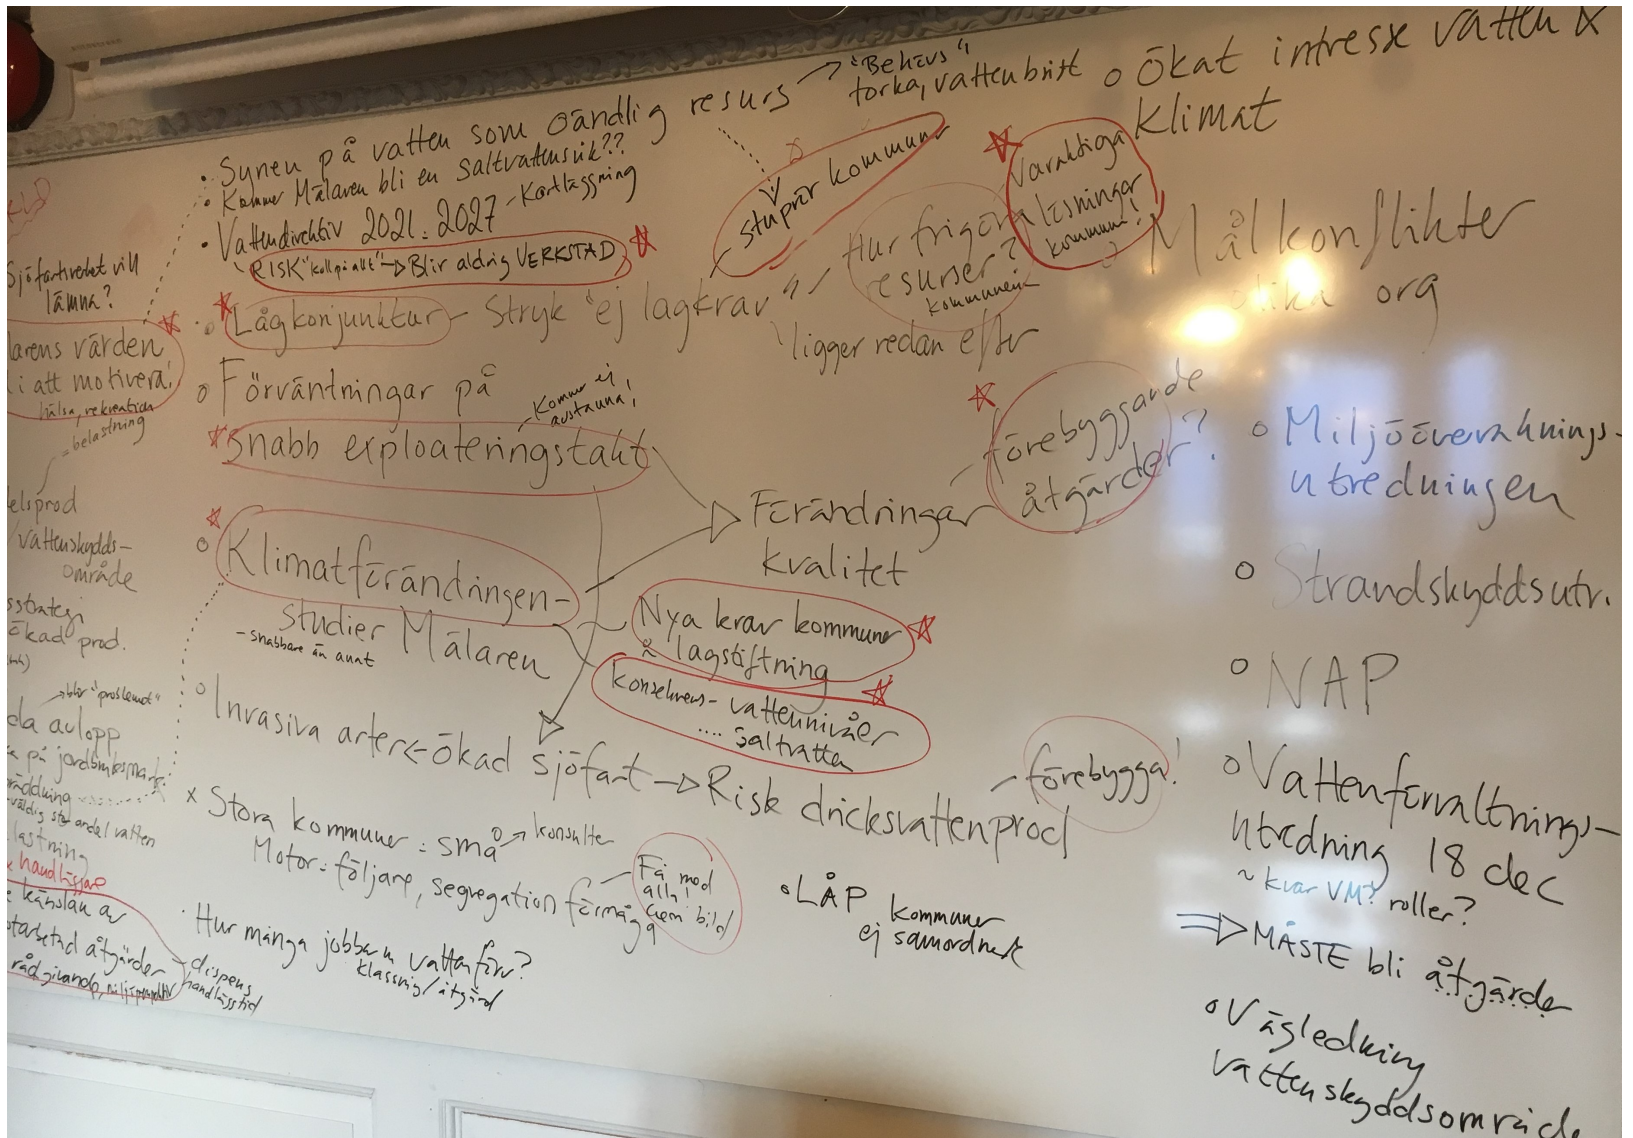 Sjöfartsverket vill
lämna?
larens värden
i att motivera!
hälsa, rekreation
- belastning
elsprod
/vattenskydds-
område
sstrategi
ökad prod.
→ blir "problemet"
da avlopp
på jordbruksmark
räddning
- väldig stor andel vatten
lastning
handläggare
känslan av
åtgärder
rådgivande,
- dispens
handläggstid
• Synen på vatten som oändlig resurs → "Behövs"
torka, vattenbrist
• Kommer Mälaren bli en saltvattensvik??
• Vattendirektiv 2021-2027 - Kartläggning
RISK "koll på allt" → Blir aldrig VERKSTAD
stuprör kommuner
Lågkonjunktur - Stryk "ej lagkrav"
ligger redan efter
Hur frigöra
resurser?
kommunen
Varaktiga
lösningar
kommun!
o Förväntningar på
Snabb exploateringstakt
- Kommer ej
avstanna!
→ Förändringar
kvalitet
förebyggande
åtgärder?
o Klimatförändringen -
studier Mälaren
- snabbare än annt
Nya krav kommuner
& lagstiftning
Konsekvens - vattennivåer
.... saltvatten
o Invasiva arter ← ökad sjöfart → Risk dricksvattenprod
- förebygga!
x Stora kommuner - små → konsulter
Motor - följare, segregation förmåga
Få med
alla!
Gem bild
• Hur många jobbar m vattenförv?
klassning/åtgärd
• LÅP kommuner
ej samordnat
o Ökat intresse vatten &
klimat
o Målkonflikter
olika org
o Miljöövervaknings-
utredningen
o Strandskyddsutr.
o NAP
o Vattenförvaltnings-
utredning 18 dec
~ kvar VM? roller?
⇒ MÅSTE bli åtgärder
o Vägledning
vattenskyddsområde